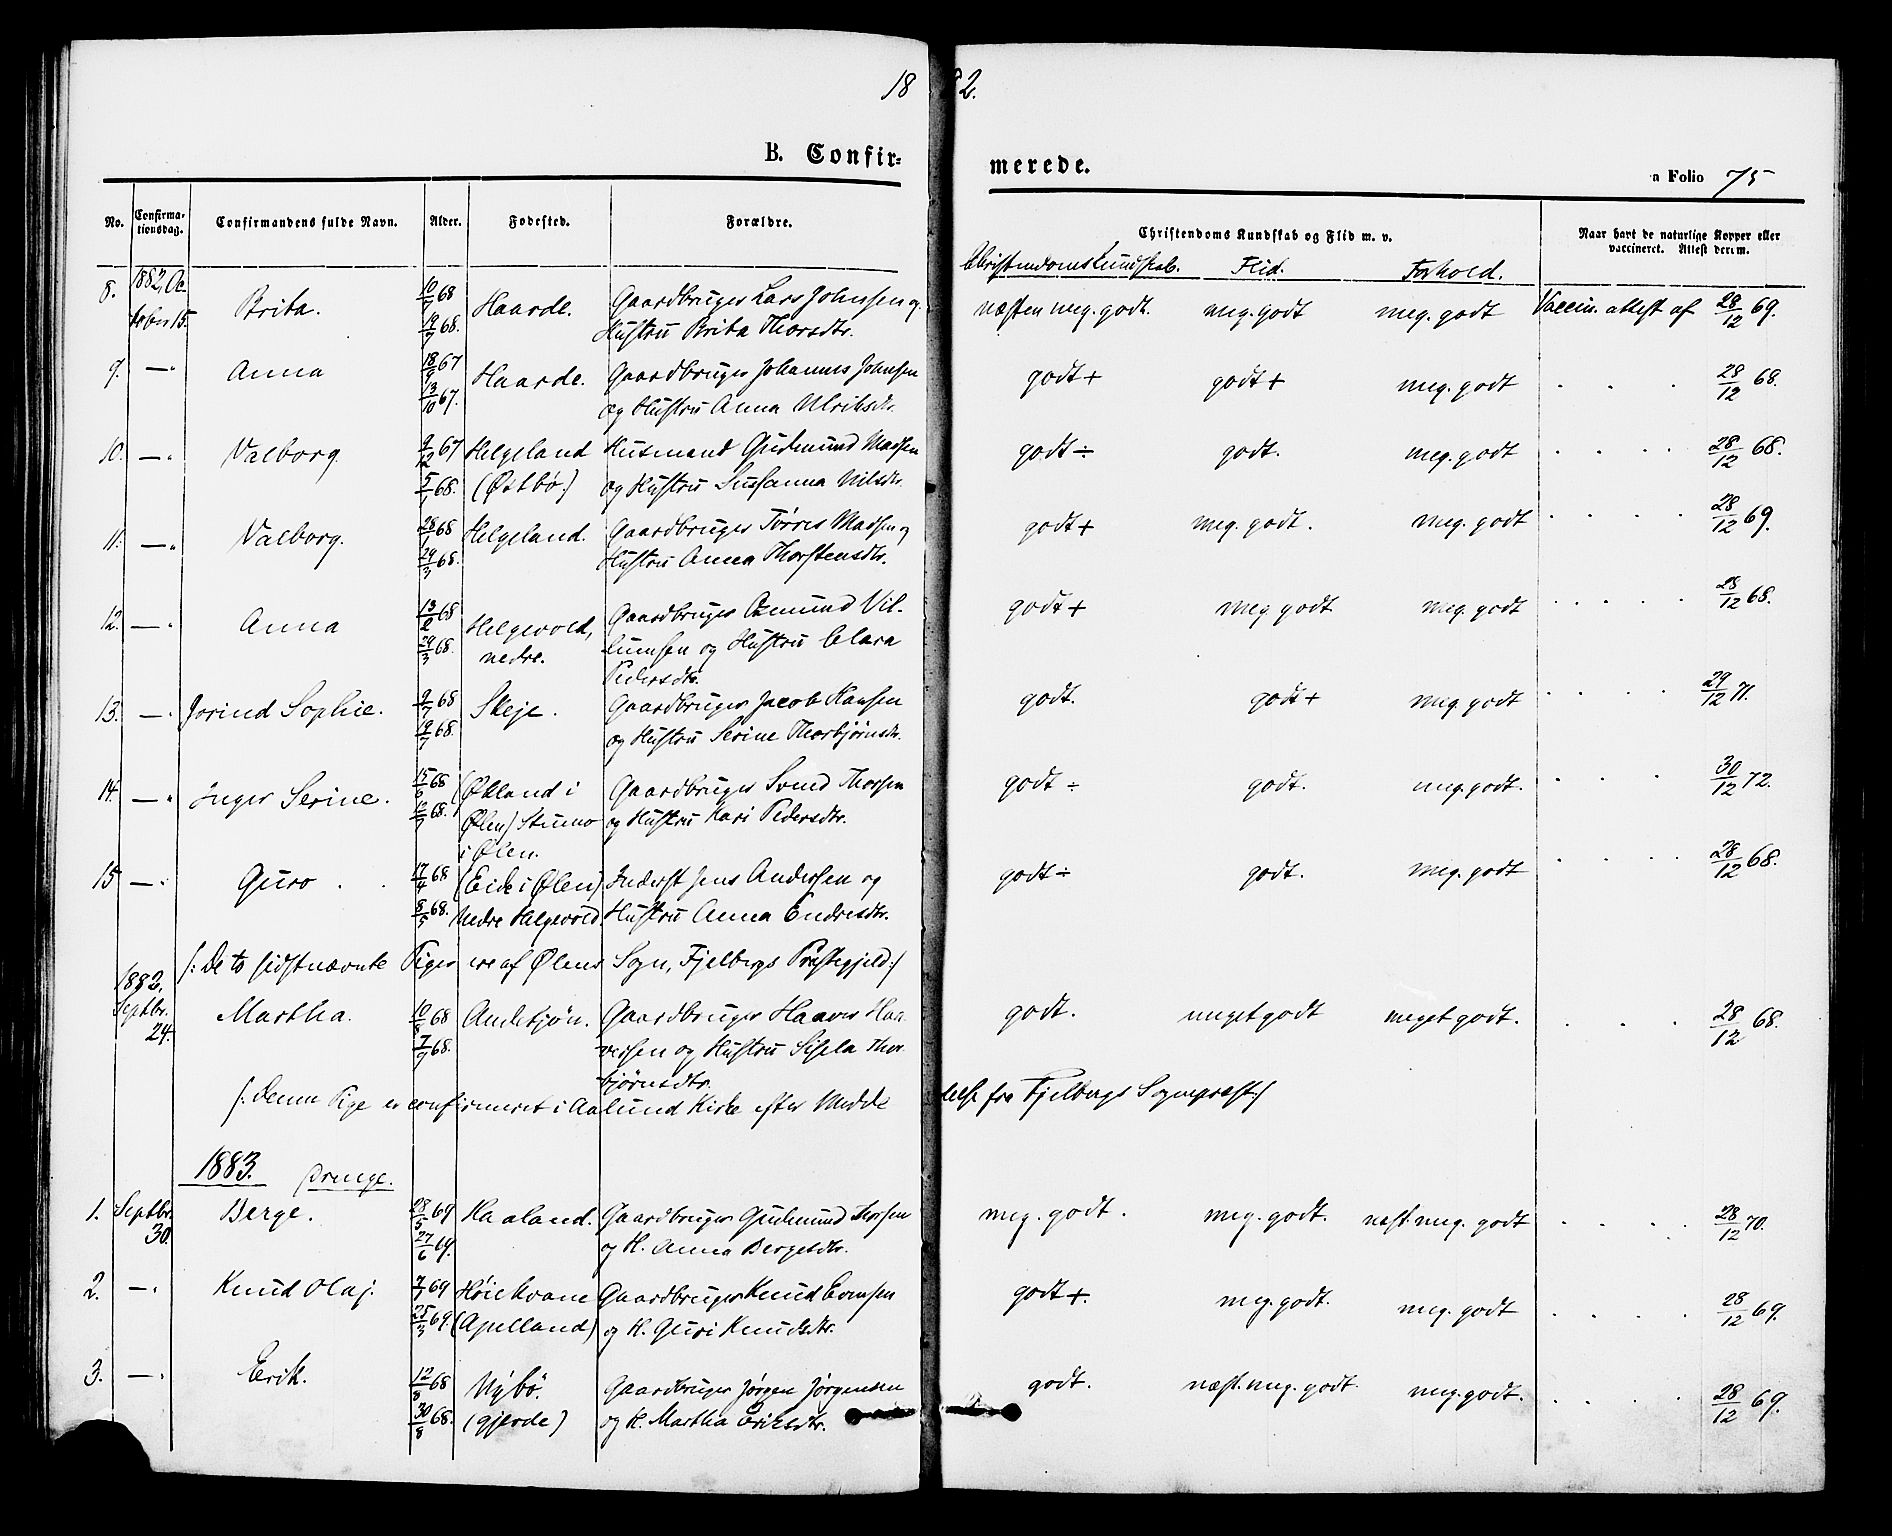 1882.
B. Confirmerede.
Folio 75
No. Confirmationsdag. Confirmandens fulde Navn. Alder. Fødested. Forældre. Christendoms Kundskab og Flid m. v. Naar havt de naturlige Kopper eller vaccineret. Attest derom.
Christendomskundskab. Flid. Forhold.
8. 1882, Oc- 10/7 68 Gaardbruger Lars Johnsen og
tober 15. Brita. 19/7 68. Haarde. Hustru Brita Thorsdtr. næsten meg. godt. meg. godt meg. godt Vaccin. attest af 28/12 69.
9. —" Anna 18/9 67 Haarde. Gaardbruger Johannes Johnsen godt + godt + meg. godt . . . 28/12 68.
13/10 67. og Hustru Anna Ulriksdtr.
10. —" Valborg. 9/12 67 Helgeland Husmand Gudmund Madsen godt ÷ godt. meg. godt . . . . 28/12 68.
5/1 68. (Østbø.) og Hustru Sussanna Nilsdtr.
11. —" Valborg. 28/1 68 Helgeland. Gaardbruger Tørres Madsen og godt + meg. godt. meg. godt . . . . 28/12 69.
29/3 68. Hustru Anna Thorstensdtr.
12. —" Anna 13/2 68 Helgevold, Gaardbruger Osmund Vil- godt + meg. godt meg. godt . . . . 28/12 68.
29/3 68. nedre. lumsen og Hustru Clara
Pedersdtr.
13. —" Jorind Sophie. 9/7 68 Skeje. Gaardbruger Jacob Hansen godt. godt + meg. godt . . . . 29/12 71.
19/7 68. og Hustru Serine Thorbjørnsdtr.
14. —" Inger Serine. 15/6 68 (Økland i Gaardbruger Svend Thorsen godt ÷ godt. meg. godt. . . . 30/12 72.
12/7 68. Ølen) Stumo og Hustru Kari Pedersdtr.
i Ølen.
15 —" Guro . . 17/4 68 (Eide i Ølen) Inderst Jens Andersen og godt ÷ godt. meg. godt . . . . 28/12 68.
8/5 68. Nedre Helgevold. Hustru Anna Endresdtr.
/: De to sidstnævnte Piger ere af Ølens Sogn, Fjelbergs Præstegjeld :/
1882,
Septbr. Martha. 10/8 68 Andetjøn. Gaardbruger Haaver Haa- godt. meget godt meget godt. . . . 28/12 68.
24. 7/9 68. versen og Hustru Sisela Thor-
bjørnsdtr.
/: Denne Pige er confirmeret i Aalund Kirke efter Meddelelse fra Fjelbergs Sognepræst :/
1883. Drenge.
1. Septbr. Berge. 28/5 69 Haaland. Gaardbruger Gudmund Thorsen meg. godt. meg. godt. næst. meg. godt . . . . 28/12 70.
30. 27/6 69. og H. Anna Bergesdtr.
2. —" Knud Olaj. 7/1 69 Høiekvane Gaardbruger Knud Evensen godt +. meg. godt. meg. godt . . . . 28/12 69.
25/3 69. (Apelland) og H. Guri Knudsdtr.
3. —" Erik. 12/8 68 Nybø. Gaardbruger Jørgen Jørgensen godt. næst. meg. godt. meg. godt. . . . . 28/12 69.
30/8 68. (gjerde) og H. Martha Eriksdtr.